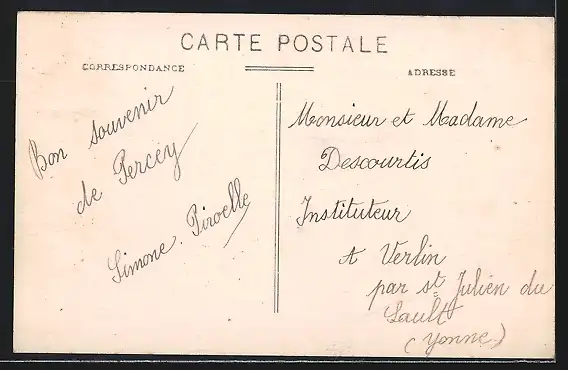 CARTE POSTALE
CORRESPONDANCE
Bon souvenir
de Percey
Simone. Piroelle
ADRESSE
Monsieur et Madame
Descourtis
Instituteur
A Verlin
par st Julien du
Sault
(Yonne)